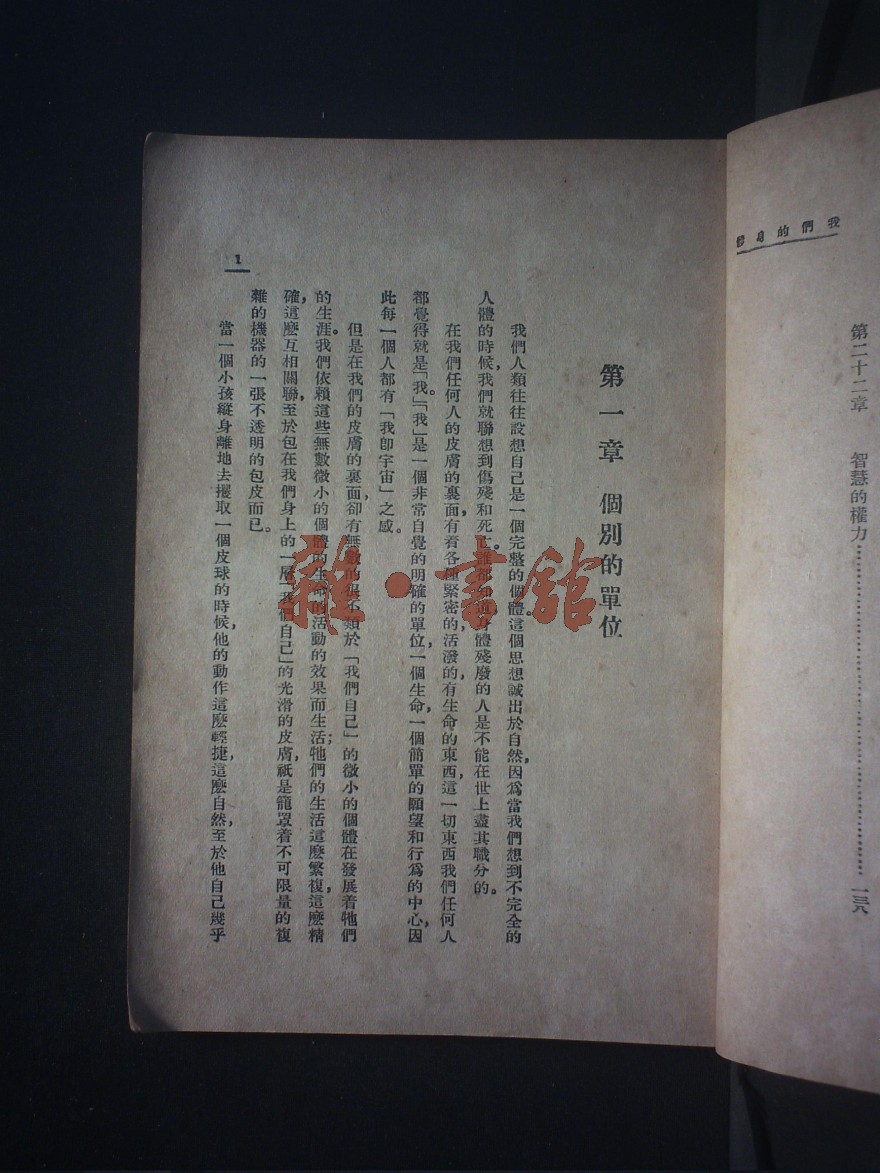 我們的身體
第二十二章 智慧的權力……………………………一三八
第一章 個別的單位
我們人類往往設想自己是一個完整的個體。這個思想誠出於自然,因爲當我們想到不完全的
人體的時候,我們就聯想到傷殘和死亡。誰都知道身體殘廢的人是不能在世上盡其職分的。
在我們任何人的皮膚的裏面,有着各種緊密的活潑的有生命的東西,這一切東西我們任何人
都覺得就是「我。」「我」是一個非常自覺的明確的單位,一個生命,一個簡單的願望和行爲的中心,因
此每一個人都有「我卽宇宙」之感。
但是在我們的皮膚的裏面,卻有無數的很不類於「我們自己」的微小的個體在發展着牠們
的生涯。我們依賴這些無數微小的個體的生命的活動的效果而生活;牠們的生活這麽繁複,這麽精
確,這麽互相關聯,至於包在我們身上的一層「我們自己」的光滑的皮膚,祇是籠罩着不可限量的複
雜的機器的一張不透明的包皮而已。
當一個小孩縱身離地去攫取一個皮球的時候,他的動作這麽輕捷,這麽自然,至於他自己幾乎
1
雜·書館